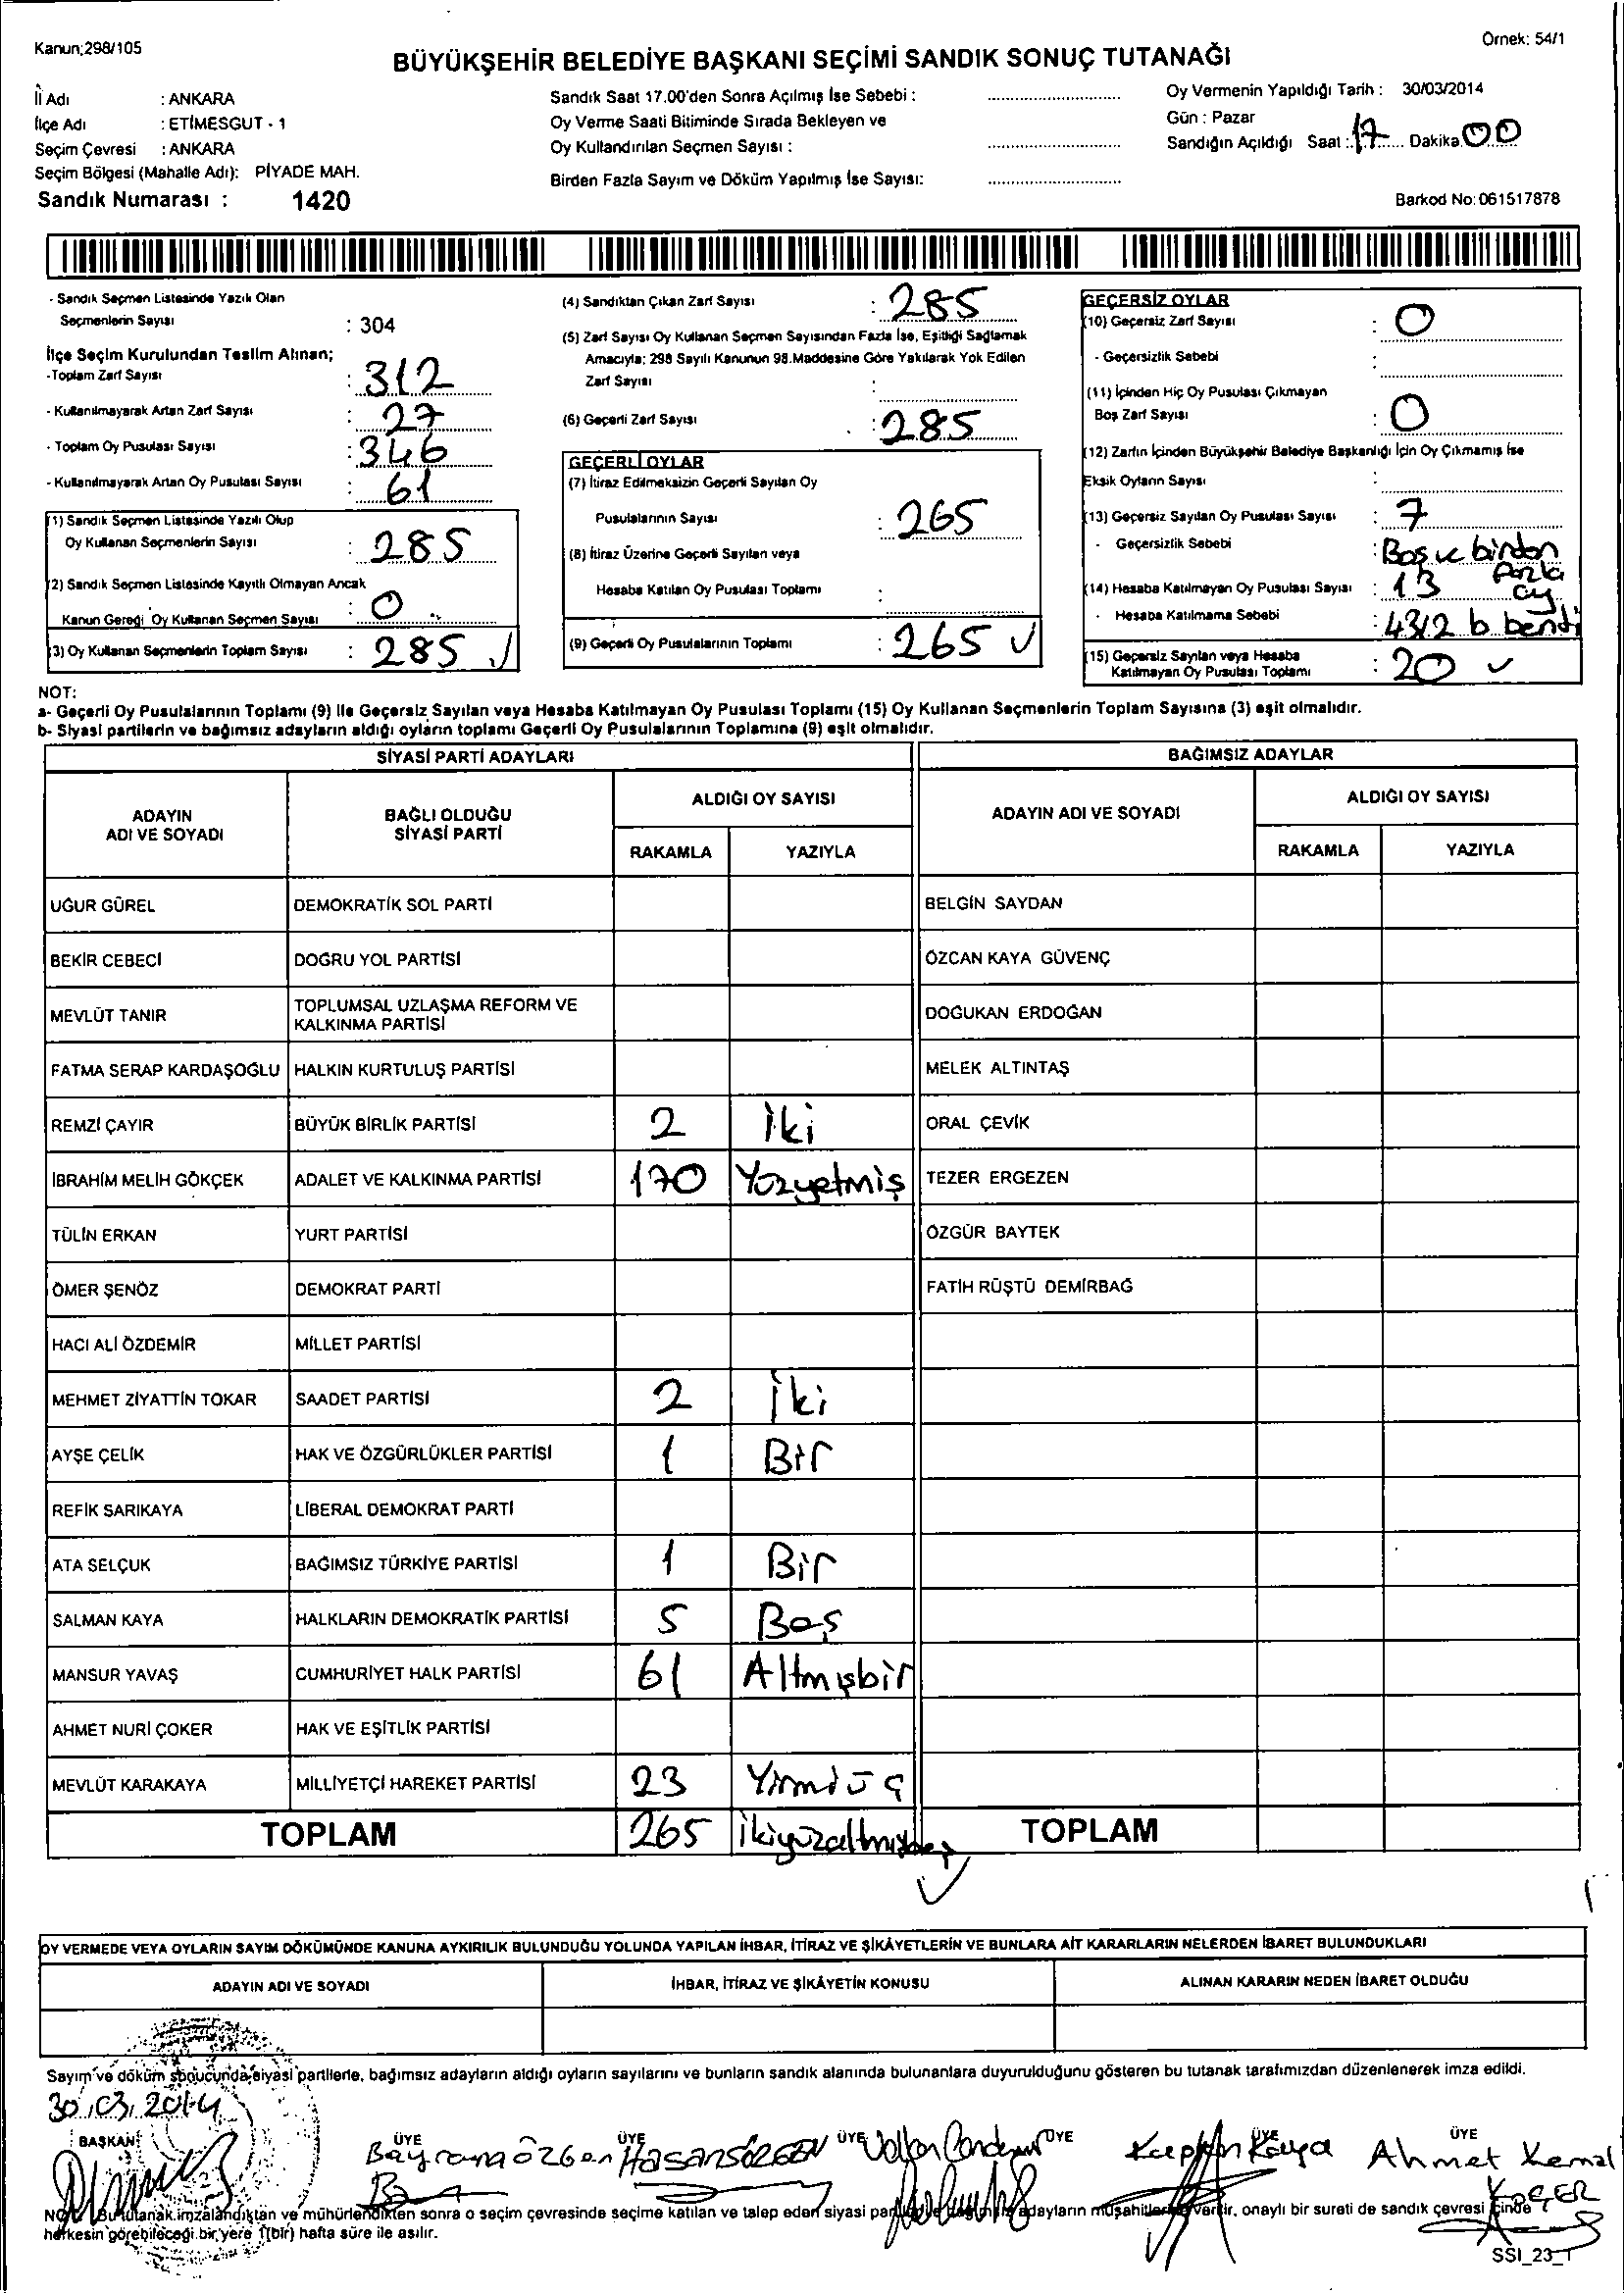 Kanun;298/105
Örnek: 54/1
BÜYÜKŞEHİR BELEDİYE BAŞKANI SEÇİMİ SANDIK SONUÇ TUTANAĞI
İl Adı : ANKARA
İlçe Adı : ETİMESGUT - 1
Seçim Çevresi : ANKARA
Seçim Bölgesi (Mahalle Adı): PİYADE MAH.
Sandık Numarası : 1420
Sandık Saat 17.00'den Sonra Açılmış İse Sebebi :
Oy Verme Saati Bitiminde Sırada Bekleyen ve
Oy Kullandırılan Seçmen Sayısı :
Birden Fazla Sayım ve Döküm Yapılmış İse Sayısı:
Oy Vermenin Yapıldığı Tarih : 30/03/2014
Gün : Pazar
Sandığın Açıldığı Saat : 17 Dakika 00
Barkod No: 061517878
- Sandık Seçmen Listesinde Yazılı Olan
Seçmenlerin Sayısı : 304
İlçe Seçim Kurulundan Teslim Alınan;
-Toplam Zarf Sayısı : 312
- Kullanılmayarak Artan Zarf Sayısı : 27
- Toplam Oy Pusulası Sayısı : 346
- Kullanılmayarak Artan Oy Pusulası Sayısı : 61
(1) Sandık Seçmen Listesinde Yazılı Olup
Oy Kullanan Seçmenlerin Sayısı : 285
(2) Sandık Seçmen Listesinde Kayıtlı Olmayan Ancak
Kanun Gereği Oy Kullanan Seçmen Sayısı : 0
(3) Oy Kullanan Seçmenlerin Toplam Sayısı : 285
(4) Sandıktan Çıkan Zarf Sayısı : 285
(5) Zarf Sayısı Oy Kullanan Seçmen Sayısından Fazla İse, Eşitliği Sağlamak
Amacıyla; 298 Sayılı Kanunun 98.Maddesine Göre Yakılarak Yok Edilen
Zarf Sayısı :
(6) Geçerli Zarf Sayısı : 285
GEÇERLİ OYLAR
(7) İtiraz Edilmeksizin Geçerli Sayılan Oy
Pusulalarının Sayısı : 265
(8) İtiraz Üzerine Geçerli Sayılan veya
Hesaba Katılan Oy Pusulası Toplamı :
(9) Geçerli Oy Pusulalarının Toplamı : 265
GEÇERSİZ OYLAR
(10) Geçersiz Zarf Sayısı : 0
- Geçersizlik Sebebi :
(11) İçinden Hiç Oy Pusulası Çıkmayan
Boş Zarf Sayısı : 0
(12) Zarfın İçinden Büyükşehir Belediye Başkanlığı İçin Oy Çıkmamış İse
Eksik Oyların Sayısı :
(13) Geçersiz Sayılan Oy Pusulası Sayısı : 7
- Geçersizlik Sebebi : Boş ve birden fazla oy
(14) Hesaba Katılmayan Oy Pusulası Sayısı : 13
- Hesaba Katılmama Sebebi : 43/2 b bendi
(15) Geçersiz Sayılan veya Hesaba
Katılmayan Oy Pusulası Toplamı : 20
NOT:
a- Geçerli Oy Pusulalarının Toplamı (9) ile Geçersiz Sayılan veya Hesaba Katılmayan Oy Pusulası Toplamı (15) Oy Kullanan Seçmenlerin Toplam Sayısına (3) eşit olmalıdır.
b- Siyasi partilerin ve bağımsız adayların aldığı oyların toplamı Geçerli Oy Pusulalarının Toplamına (9) eşit olmalıdır.
SİYASİ PARTİ ADAYLARI
BAĞIMSIZ ADAYLAR
ADAYIN ADI VE SOYADI
BAĞLI OLDUĞU SİYASİ PARTİ
ALDIĞI OY SAYISI
RAKAMLA YAZIYLA
ADAYIN ADI VE SOYADI
ALDIĞI OY SAYISI
RAKAMLA YAZIYLA
UĞUR GÜREL DEMOKRATİK SOL PARTİ BELGİN SAYDAN
BEKİR CEBECİ DOĞRU YOL PARTİSİ ÖZCAN KAYA GÜVENÇ
MEVLÜT TANIR TOPLUMSAL UZLAŞMA REFORM VE KALKINMA PARTİSİ DOĞUKAN ERDOĞAN
FATMA SERAP KARDAŞOĞLU HALKIN KURTULUŞ PARTİSİ MELEK ALTINTAŞ
REMZİ ÇAYIR BÜYÜK BİRLİK PARTİSİ 2 İki ORAL ÇEVİK
İBRAHİM MELİH GÖKÇEK ADALET VE KALKINMA PARTİSİ 170 Yüzyetmiş TEZER ERGEZEN
TÜLİN ERKAN YURT PARTİSİ ÖZGÜR BAYTEK
ÖMER ŞENÖZ DEMOKRAT PARTİ FATİH RÜŞTÜ DEMİRBAĞ
HACI ALİ ÖZDEMİR MİLLET PARTİSİ
MEHMET ZİYATTİN TOKAR SAADET PARTİSİ 2 İki
AYŞE ÇELİK HAK VE ÖZGÜRLÜKLER PARTİSİ 1 Bir
REFİK SARIKAYA LİBERAL DEMOKRAT PARTİ
ATA SELÇUK BAĞIMSIZ TÜRKİYE PARTİSİ 1 Bir
SALMAN KAYA HALKLARIN DEMOKRATİK PARTİSİ 5 Beş
MANSUR YAVAŞ CUMHURİYET HALK PARTİSİ 61 Altmışbir
AHMET NURİ ÇOKER HAK VE EŞİTLİK PARTİSİ
MEVLÜT KARAKAYA MİLLİYETÇİ HAREKET PARTİSİ 23 Yirmiüç
TOPLAM 265 İkiyüzaltmışbeş TOPLAM
OY VERMEDE VEYA OYLARIN SAYIM DÖKÜMÜNDE KANUNA AYKIRILIK BULUNDUĞU YOLUNDA YAPILAN İHBAR, İTİRAZ VE ŞİKÂYETLERİN VE BUNLARA AİT KARARLARIN NELERDEN İBARET BULUNDUKLARI
ADAYIN ADI VE SOYADI
İHBAR, İTİRAZ VE ŞİKÂYETİN KONUSU
ALINAN KARARIN NEDEN İBARET OLDUĞU
Sayım ve döküm sonucunda siyasi partilerle, bağımsız adayların aldığı oyların sayılarını ve bunların sandık alanında bulunanlara duyurulduğunu gösteren bu tutanak tarafımızdan düzenlenerek imza edildi.
30.03.2014
BAŞKAN ÜYE ÜYE ÜYE ÜYE ÜYE ÜYE
Bayram Özgen Hasan Kaplan Kaya Ahmet Kemal KOÇER
NOT: Bu tutanak imzalandıktan ve mühürlendikten sonra o seçim çevresinde seçime katılan ve talep eden siyasi adayların müşahitlerine verilir, onaylı bir sureti de sandık çevresi içinde
herkesin görebileceği bir yere 1(bir) hafta süre ile asılır.
SSI_23_1